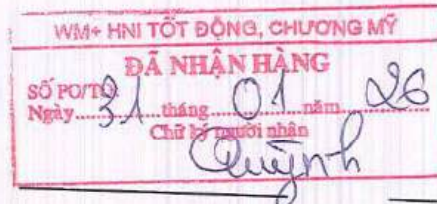 WM+ HNI TỐT ĐỘNG, CHƯƠNG MỸ
ĐÃ NHẬN HÀNG
SỐ PO/TO
Ngày 31 tháng 01 năm 26
Chữ ký người nhận
Quỳnh